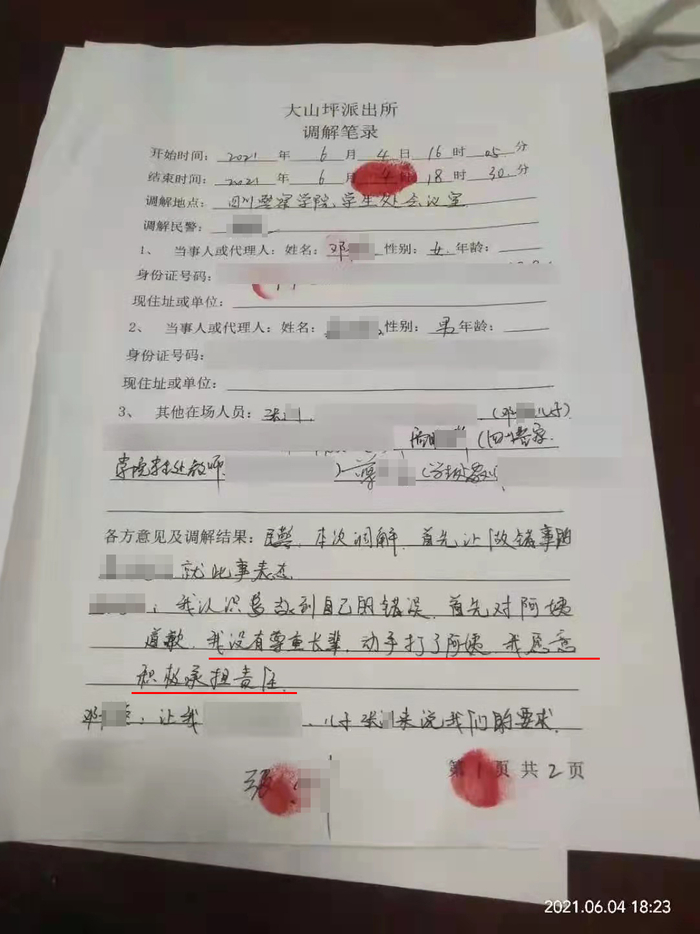 大山坪派出所
调解笔录
开始时间：2021 年 6 月 4 日 16 时 05 分
结束时间：2021 年 6 月 4 日 18 时 30 分
调解地点：四川警察学院学生处会议室
调解民警：
1、 当事人或代理人：姓名：邓 性别：女 年龄：
身份证号码：
现住址或单位：
2、 当事人或代理人：姓名： 性别：男 年龄：
身份证号码：
现住址或单位：
3、 其他在场人员：张 （邓 儿子）
（四川警察
学院 处教师 ）
各方意见及调解结果：民警：本次调解，首先让做错事的
就此事表态
：我认识 到自己的错误，首先对阿姨
道歉，我没有尊重长辈，动手打了阿姨，我愿意
积极承担责任。
邓 ：让我 ，儿子张 来说我们的要求。
张
第 1 页 共 2 页
2021.06.04 18:23